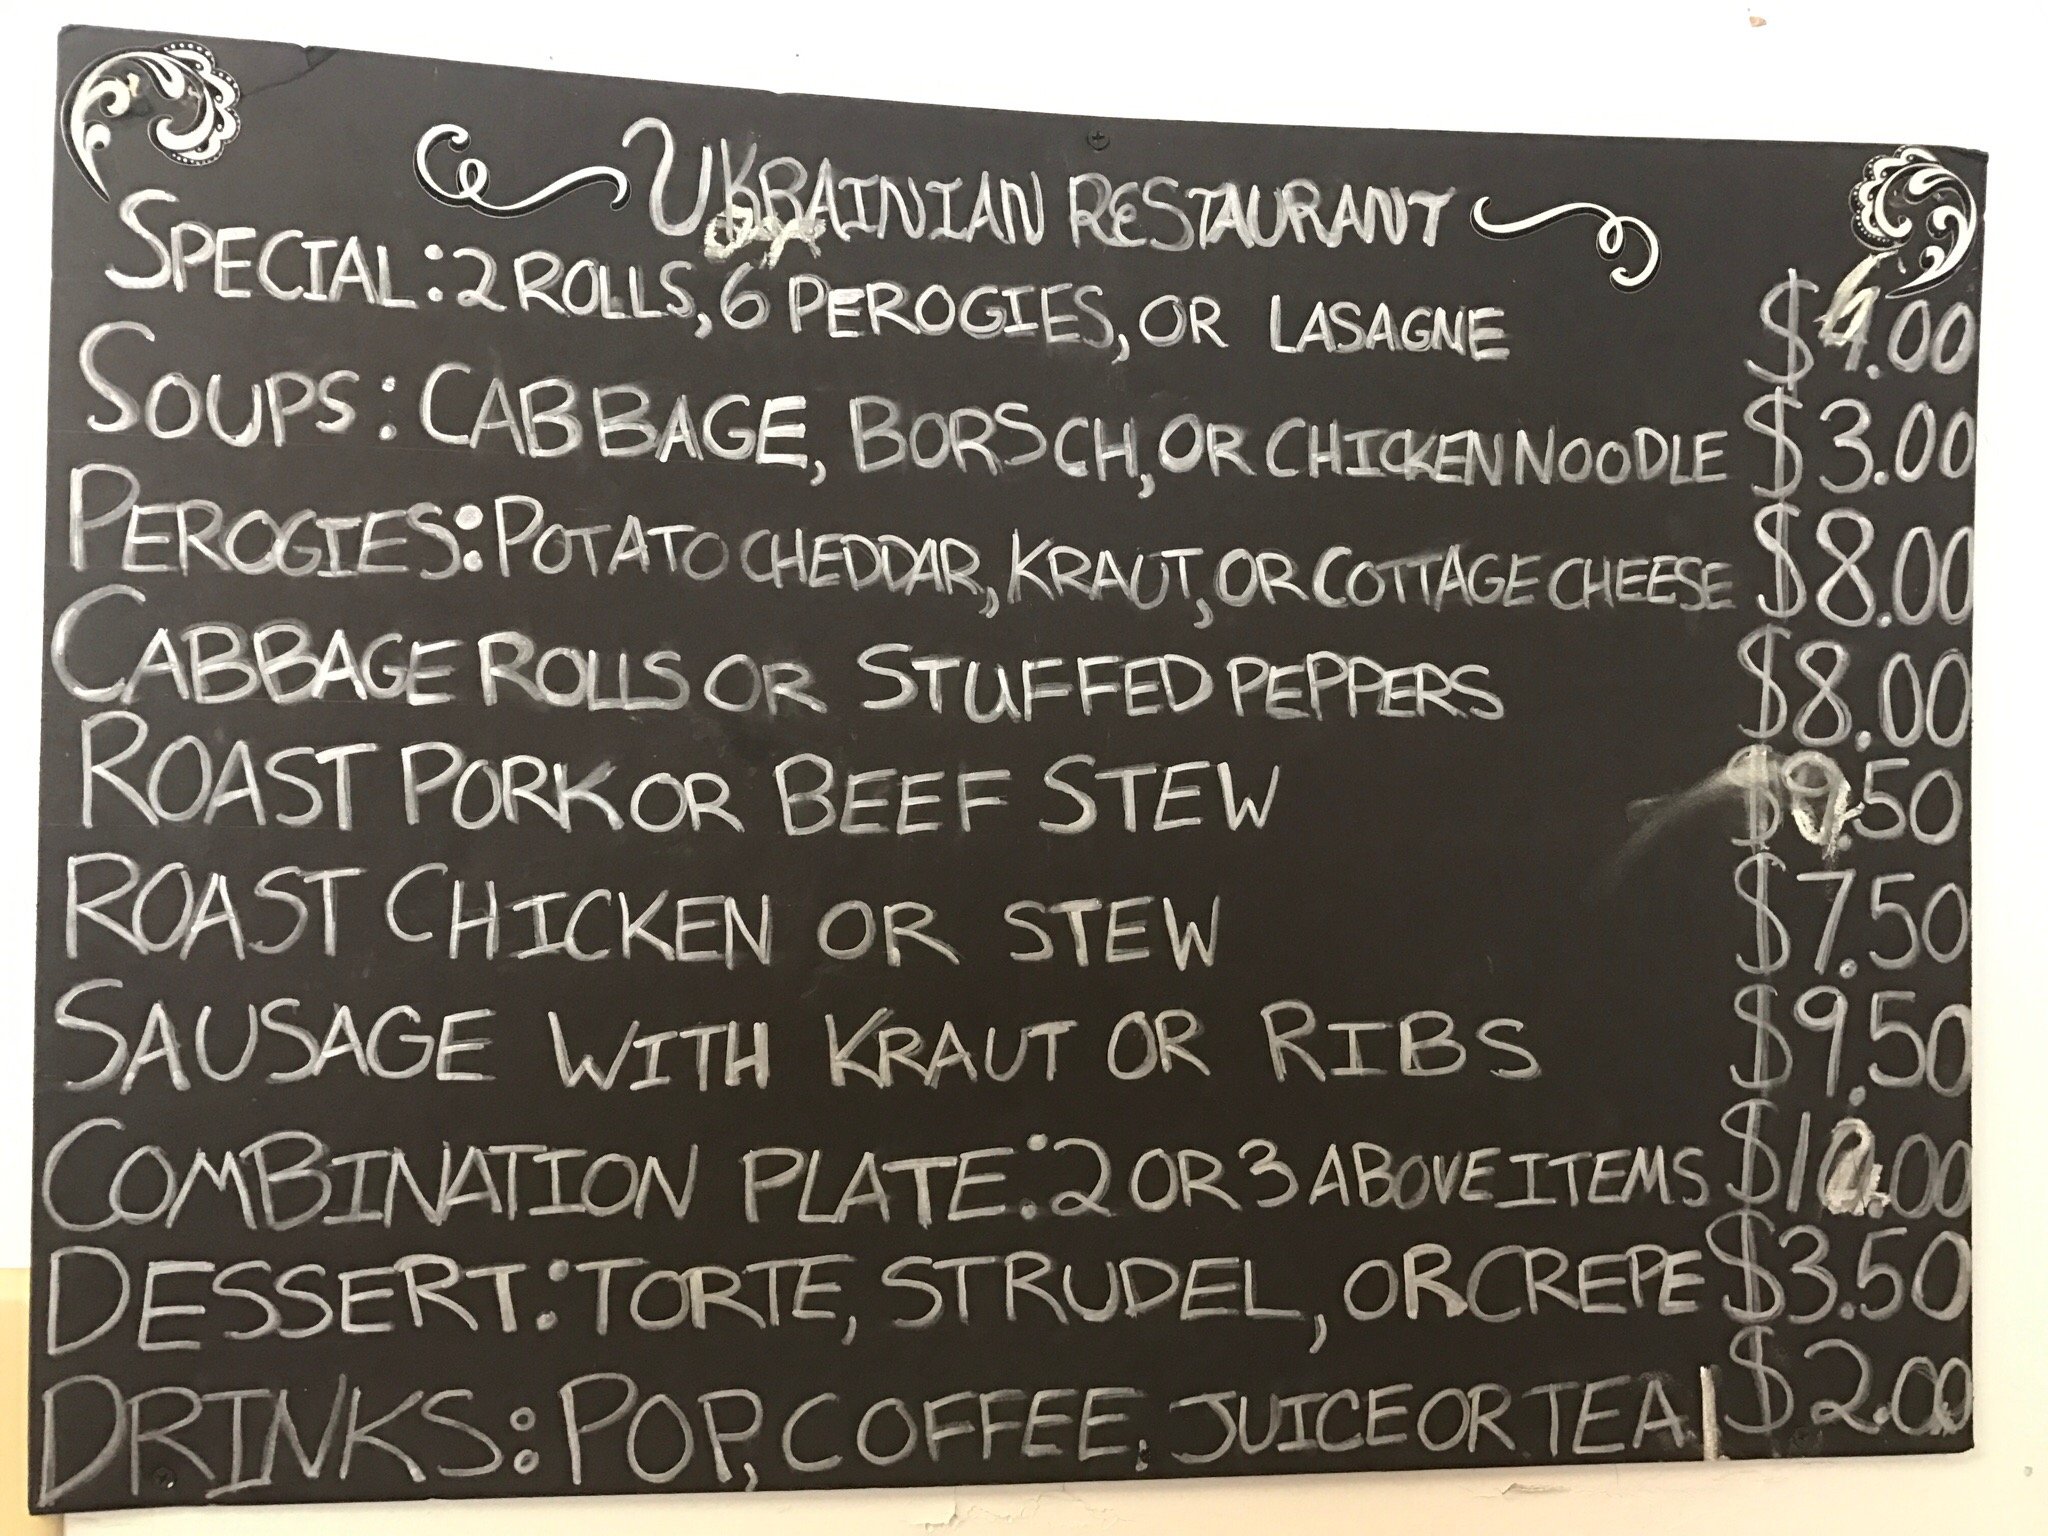 UKRAINIAN RESTAURANT
SPECIAL: 2 ROLLS, 6 PEROGIES, OR LASAGNE $4.00
SOUPS: CABBAGE, BORSCH, OR CHICKEN NOODLE $3.00
PEROGIES: POTATO CHEDDAR, KRAUT, OR COTTAGE CHEESE $8.00
CABBAGE ROLLS OR STUFFED PEPPERS $8.00
ROAST PORK OR BEEF STEW $9.50
ROAST CHICKEN OR STEW $7.50
SAUSAGE WITH KRAUT OR RIBS $9.50
COMBINATION PLATE: 2 OR 3 ABOVE ITEMS
DESSERT: TORTE, STRUDEL, OR CREPE $3.50
DRINKS: POP, COFFEE, JUICE OR TEA $2.00